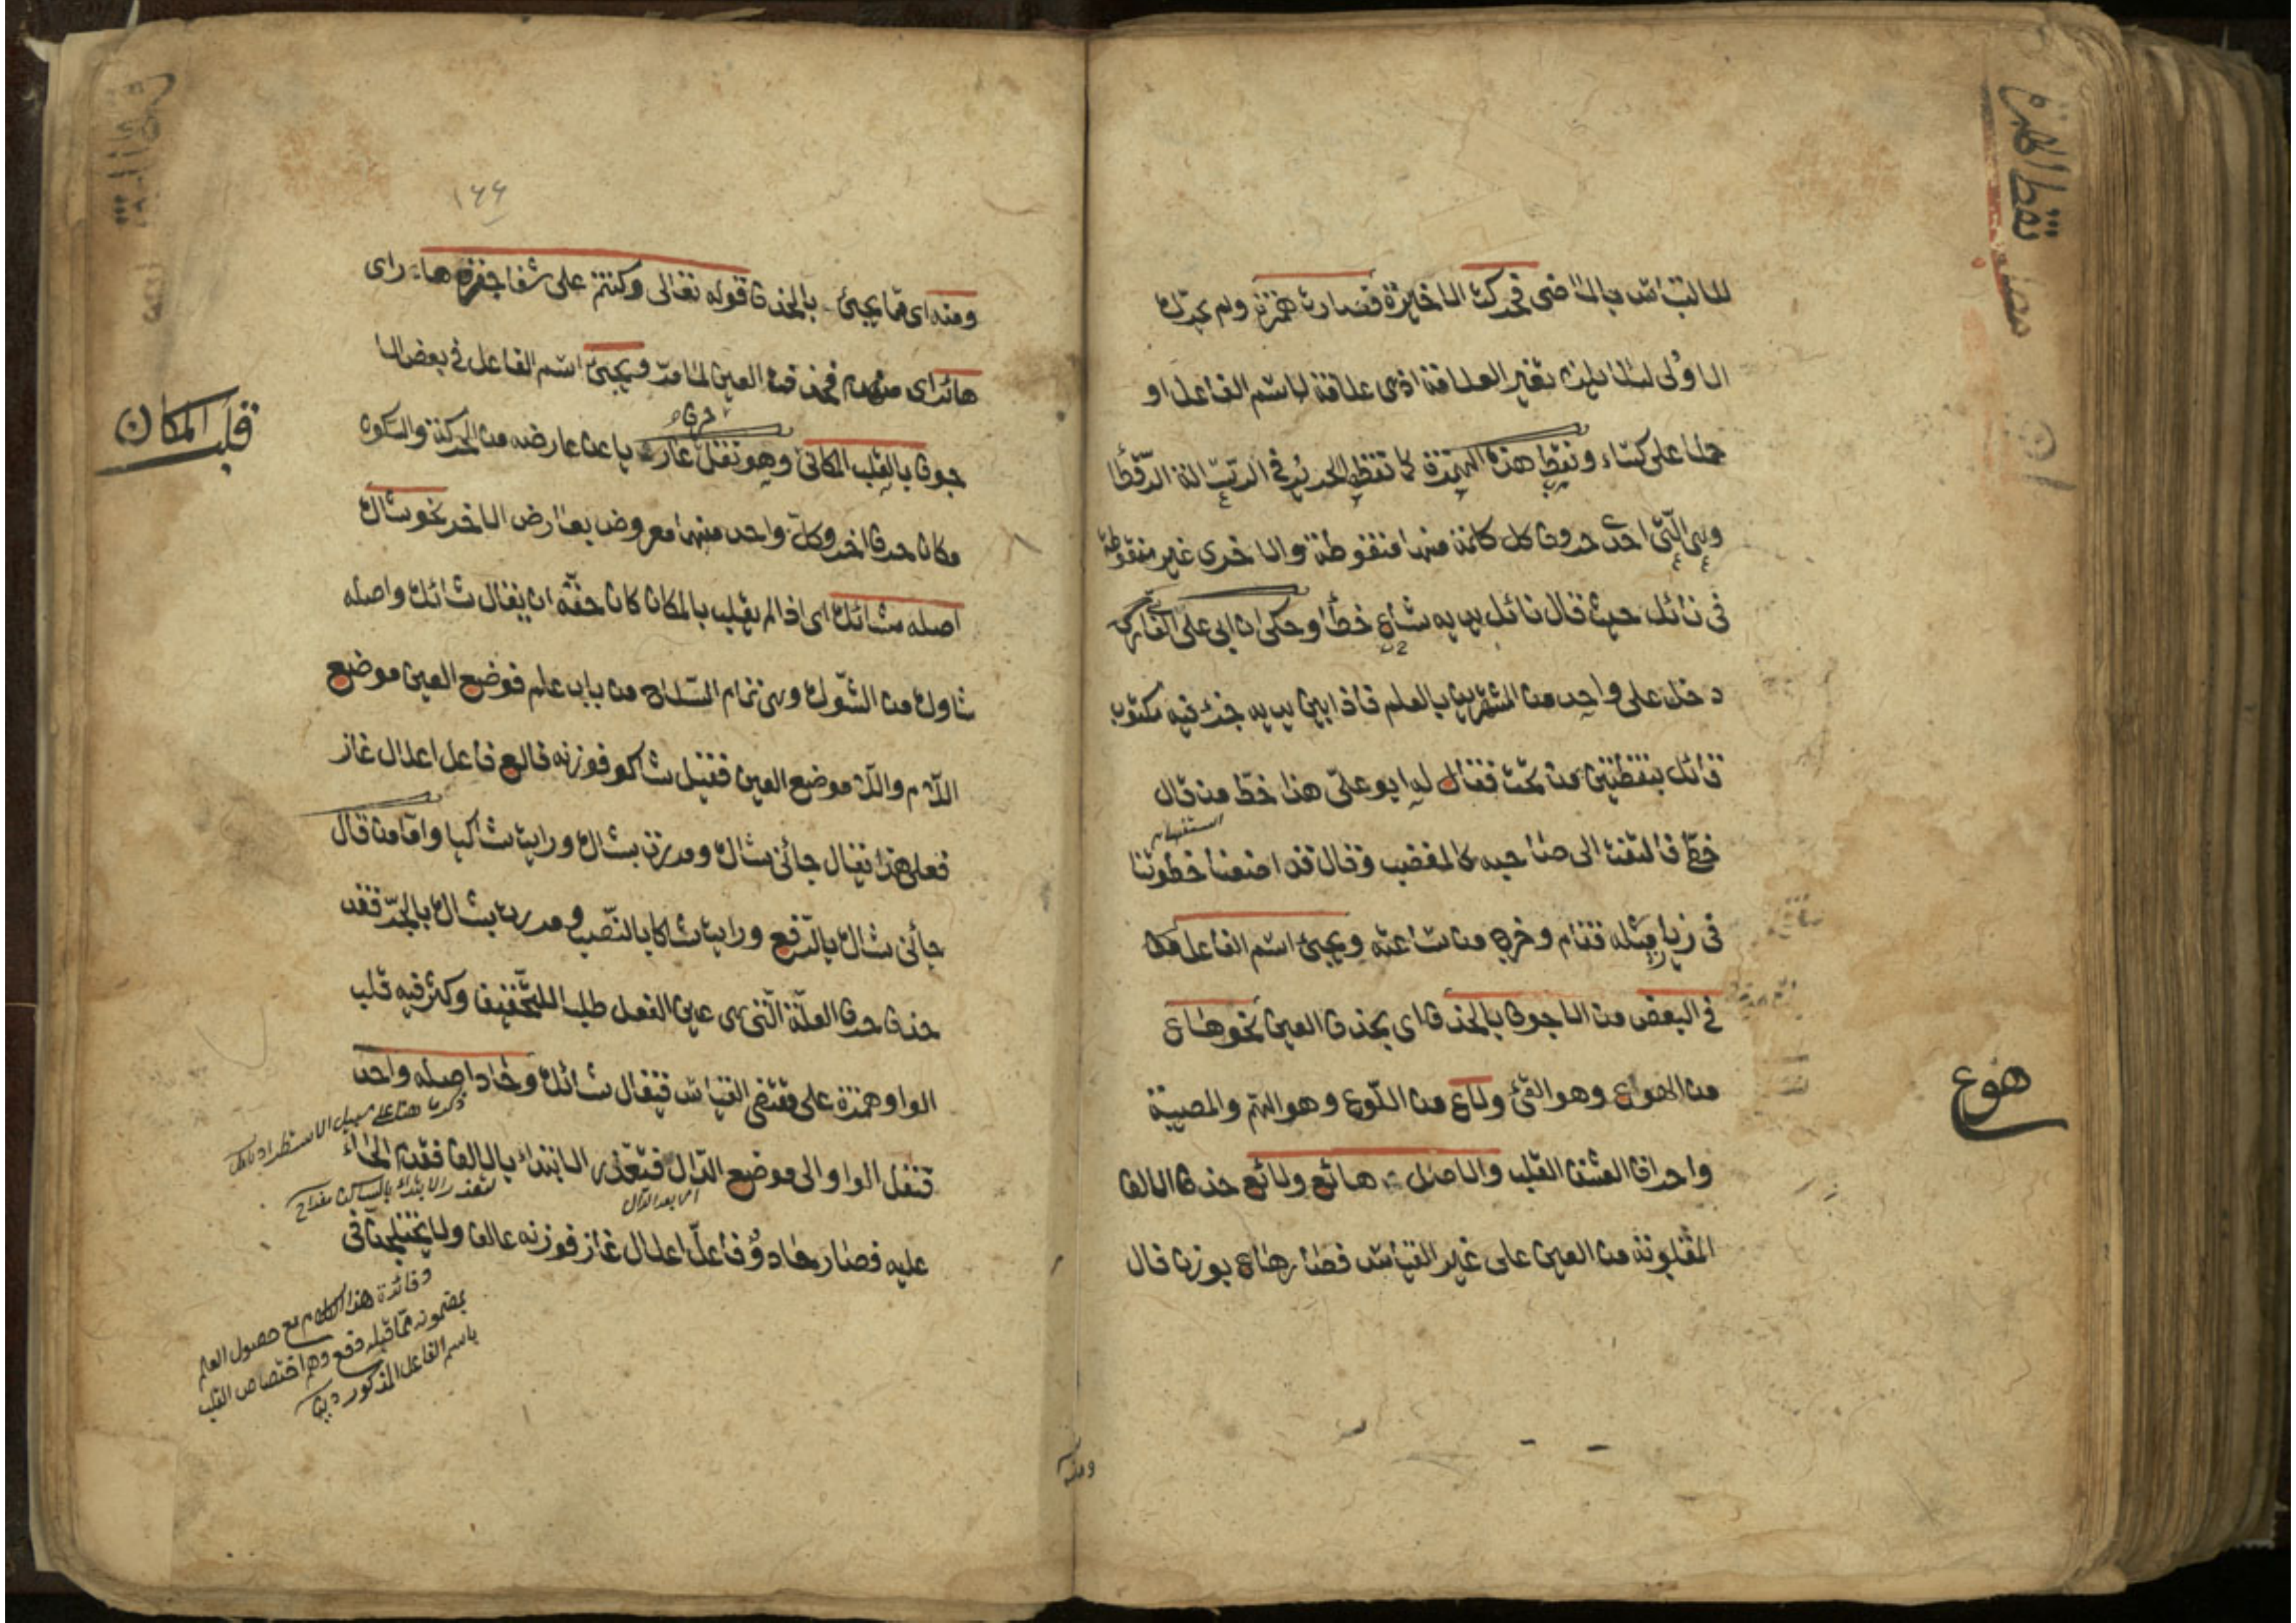 نقط الهمزة
لالتباس بالماضي فحركت الاخيرة فصارت همزة ولم يحرك
الاولى لئلا يلزم تغير العلاقة اذ هي علاقة لاسم الفاعل او
حملا على كساء ونقط هذه الهمزة كما نقط الحريري في الرسالة الرقطا
وهي التي احدى حروف كل كلمة منها منقوطة والاخرى غير منقوطة
في نائل حيث قال نائل يديه شاع خطأ وحكى ان ابي على الفارسي
دخل على واحد من المشتهرين بالعلم فاذا بين يديه جزء فيه مكتوب
قائل بنقطتين من تحت فقال له ابو على هذا خط من قال
استفهام
خطي فالتفت الى صاحبه كالمغضب وقال قد اضعنا خطوتنا
في زيارة مثله فقام وخرج من ساعته ويجئ اسم الفاعل
في البعض من الاجوف بالحذف اى بحذف العين نحو هاع
هوع
من الهواع وهو القئ ولاع من اللوع وهو الهم والمصيبة
واحراق العشق القلب والاصل هائع ولائع حذف الالف
المقلوبة من العين على غير القياس فصار هاع بوزن قال
ومنه
١٦٦
ومنه اى مما يجئ بالحذف قوله تعالى وكنتم على شفا جرف هار اى
هائر اى منهدم فحذفت العين لما مر ويجئ اسم الفاعل في بعض الا
قلب المكان
جوف بالقلب المكاني وهو نقل عارٍ حرف يا عن عارضه من الحركة والسكون
مكان حرف اخر وكل واحد منهما معروض بعارض الاخر نحو شاك
اصله شائك اى اذا لم يقلب بالمكان كان حقه ان يقال شائك واصله
شاوك من الشوك وهي تمام السلاح من باب علم فوضع العين موضع
اللام واللام موضع العين فقيل شاكو فوزنه فالع فاعل اعلال غاز
فعلى هذا يقال جائني شاك ومررت بشاك ورايت شاكيا واما من قال
جائني شاك بالرفع ورايت شاكا بالنصب ومررت بشاك بالجر فقد
حذف حرف العلة التي هي عين الفعل طلبا للتخفيف وكثر فيه قلب
الواو همزة على مقتضى القياس فيقال شائك وحاد اصله واحد
ذكر ما هنا على سبيل الاستطراد تأمل
فنقل الواو الى موضع الدال فتعذر الابتداء بالالف فقدم الحاء
لتعذر الابتداء بالساكن مفراح
اى بعد الدال
عليه فصار حادو فاعل اعلال غاز فوزنه عالف ولا يختلجن في
وفائدة هذا الكلام مع حصول العلم
بمضمونه مما قبله دفع وهم اختصاص القلب
باسم الفاعل المذكور